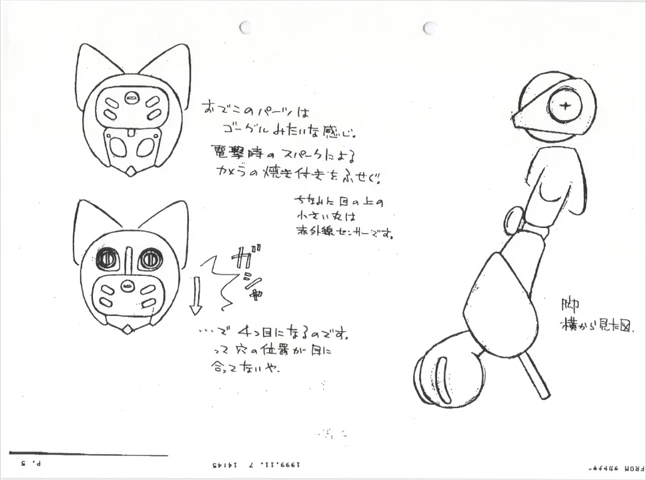 おでこのパーツは
ゴーグルみたいな感じ。
電撃時のスパークによる
カメラの焼き付きをふせぐ。
ちなみに目の上の
小さい穴は
赤外線センサーです。
ガシャ
…で 4つ目になるのです。
って穴の位置が目に
合ってないや
脚
横から見た図.
FROM
1999.11. 7 14:45
P. 5